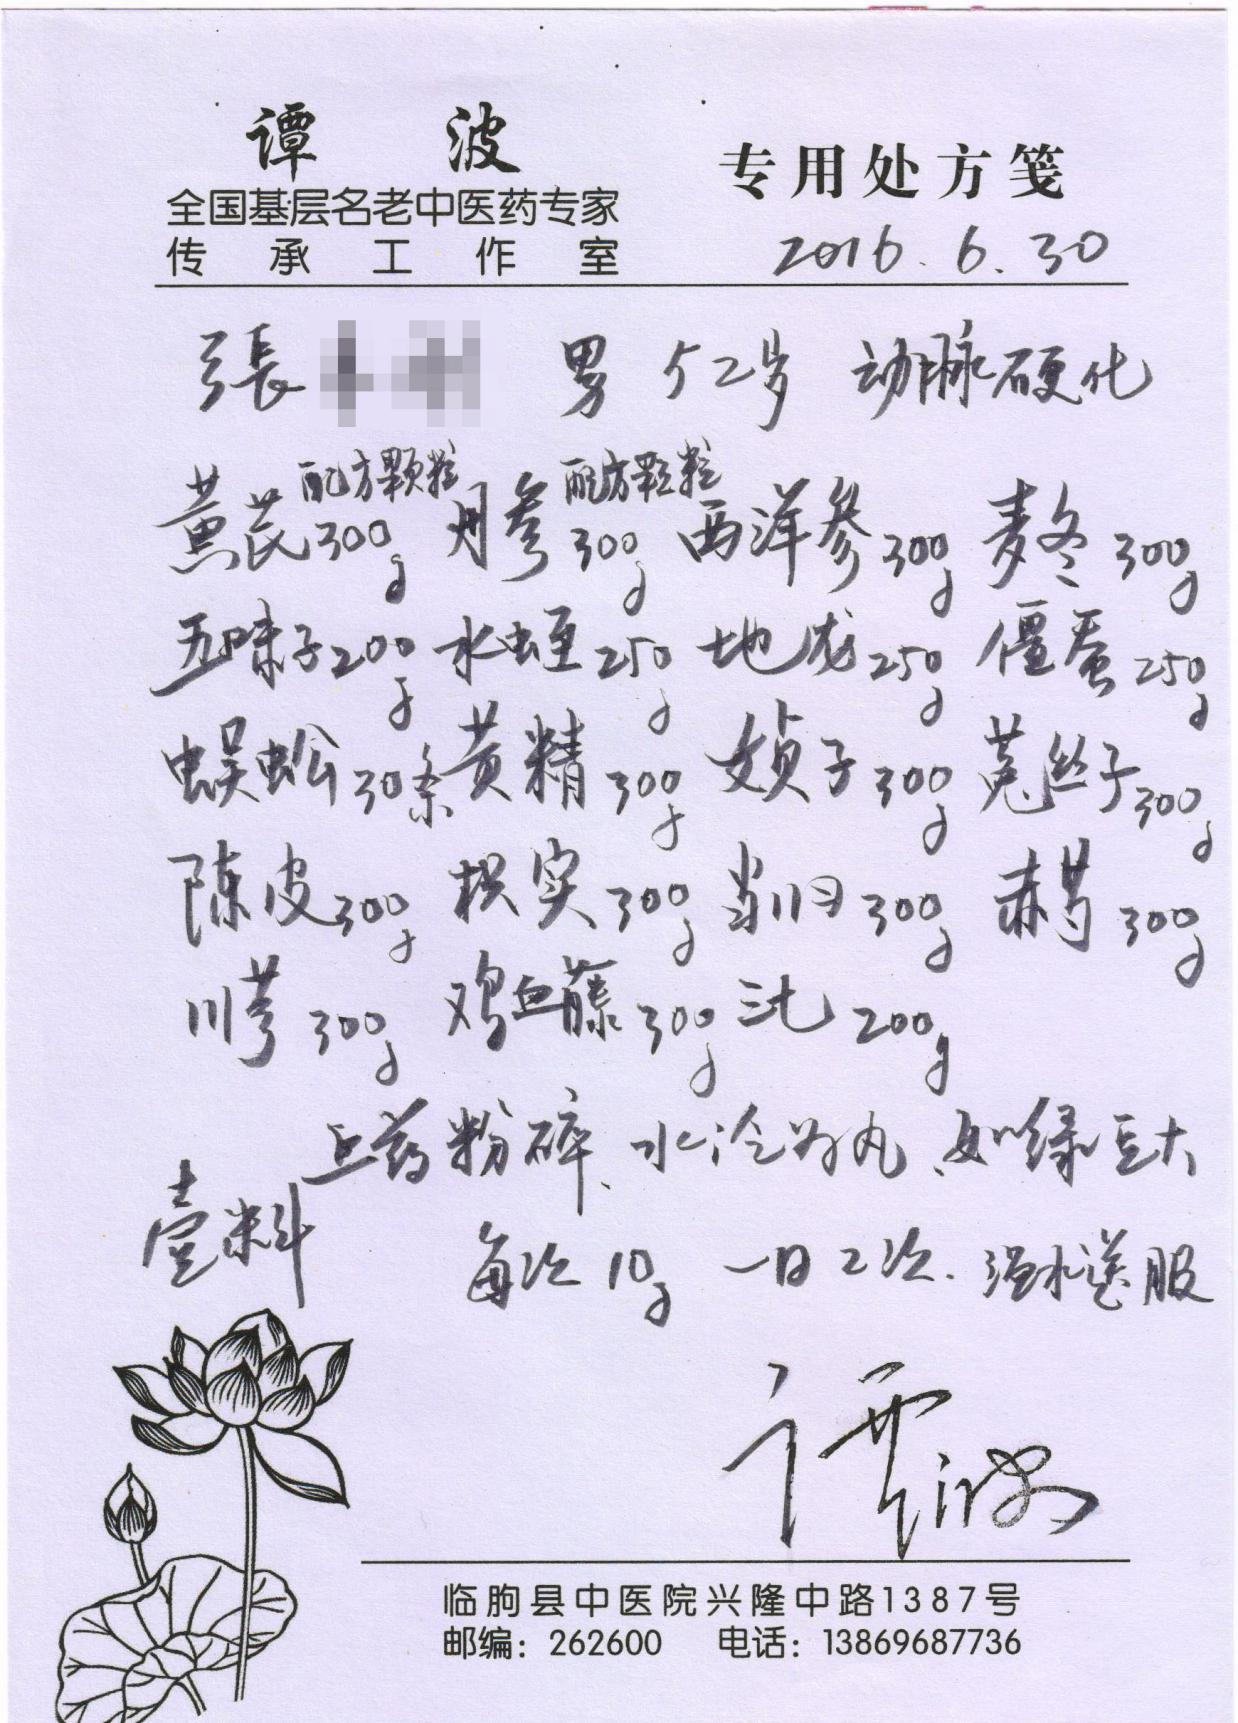 谭波
专用处方笺
全国基层名老中医药专家
传承工作室
2016.6.30
張 男 52岁 动脉硬化
配方颗粒 配方颗粒
黄芪300g 丹参300g 西洋参300g 麦冬300g
五味子200g 水蛭250g 地龙250g 僵蚕250g
蜈蚣30条 黄精300g 女贞子300g 菟丝子300g
陈皮300g 枳实300g 当归300g 赤芍300g
川芎300g 鸡血藤300g 三七200g
上药粉碎、水泛为丸、如绿豆大
壹料
每次10g 一日2次.温水送服
谭波
临朐县中医院兴隆中路1387号
邮编：262600 电话：13869687736